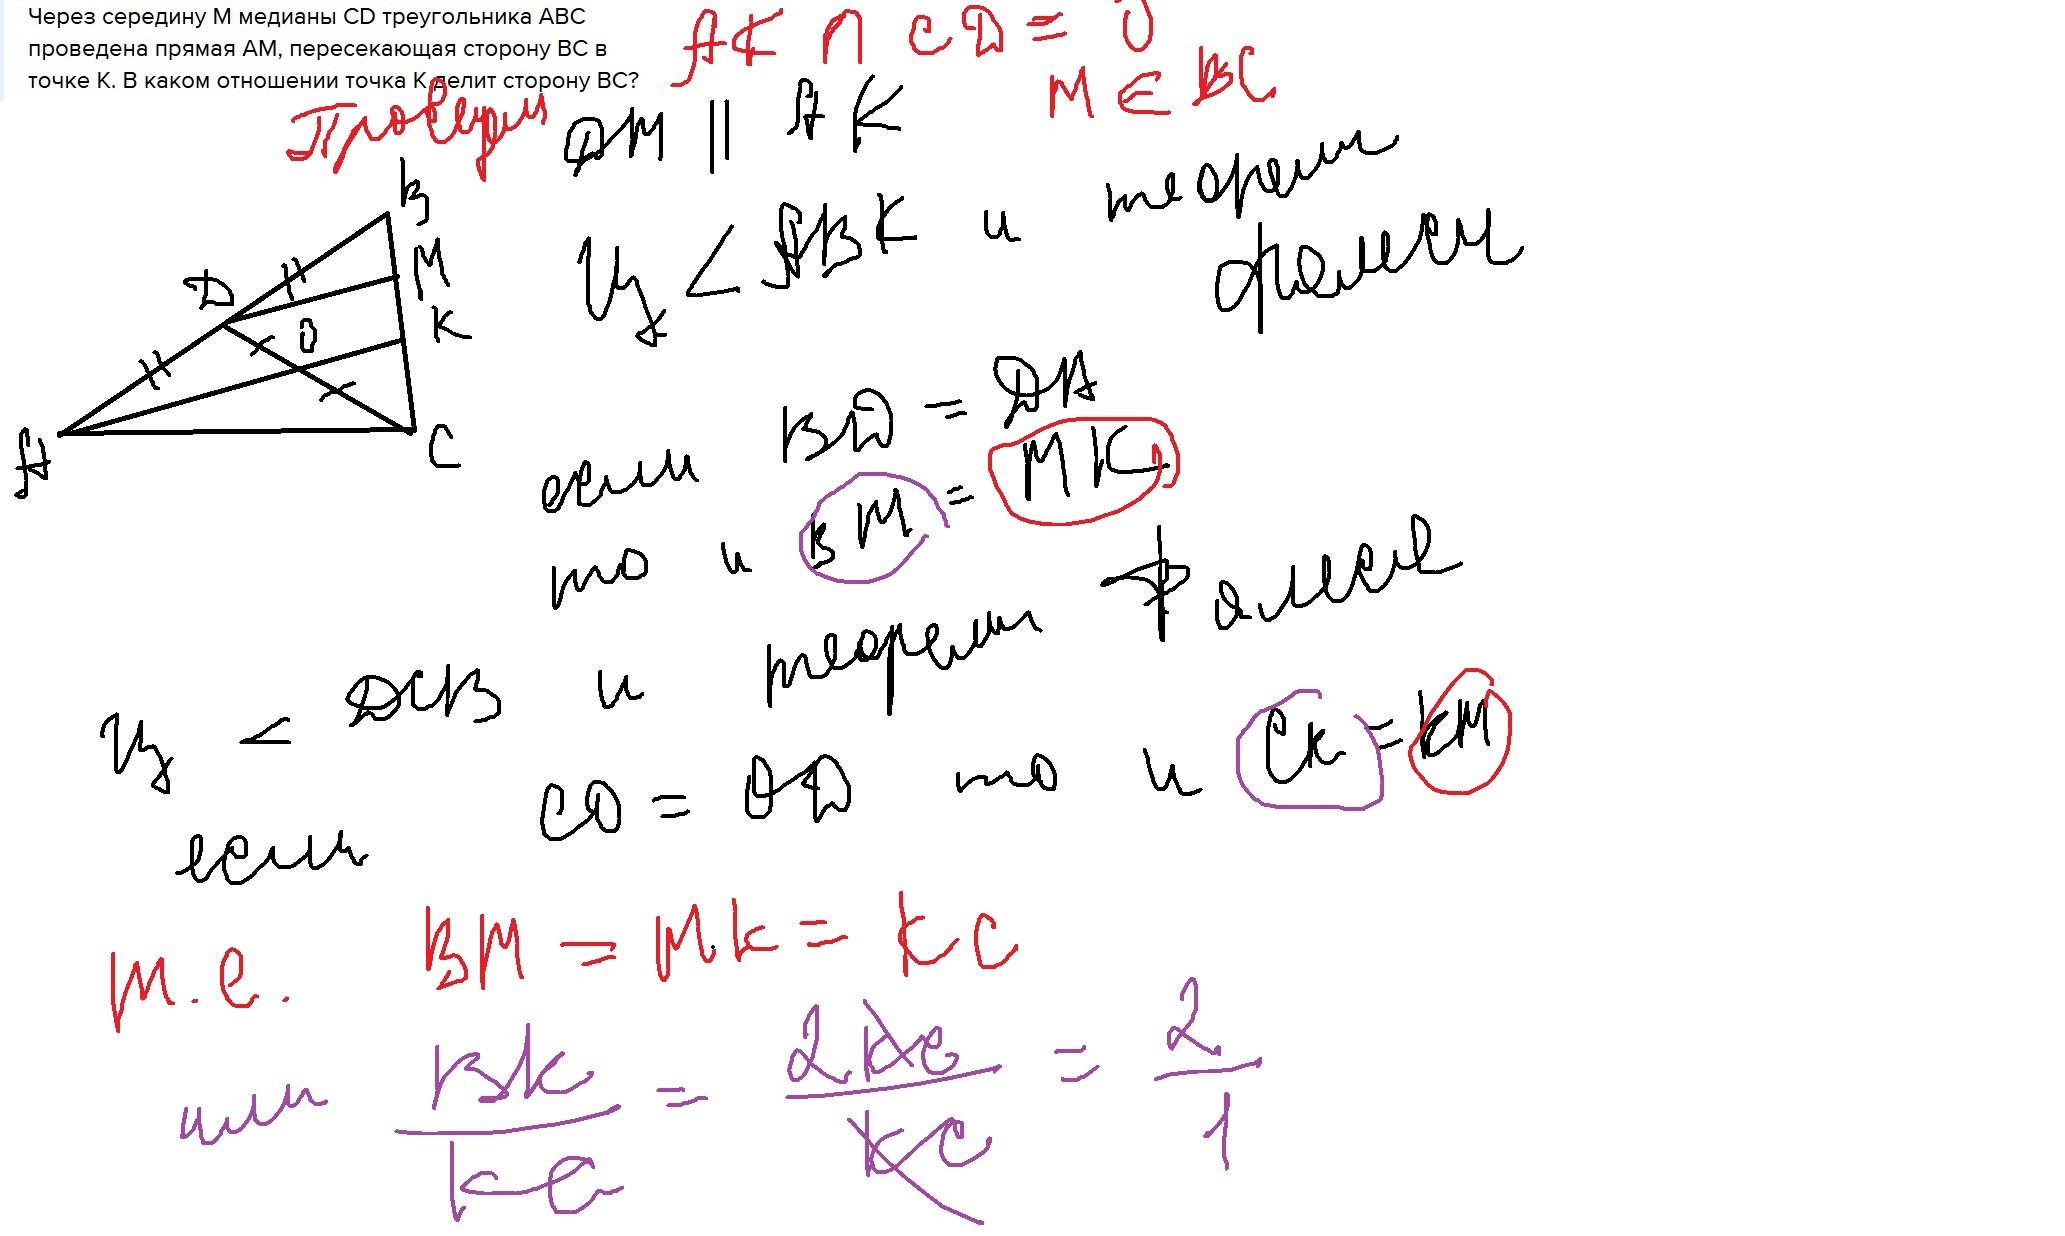 Через середину М медианы CD треугольника АВС
проведена прямая АМ, пересекающая сторону ВС в
точке К. В каком отношении точка К делит сторону ВС?
AK ∩ CD = O
M ∈ BC
Проведем DM || AK
B
M
D
K
O
A
C
Из < ABK и теорем Фалеса
если BD = DA
то и BM = MK,
Из < DCB и теорем Фалеса
если CO = OD то и CK = KM
т.е. BM = MK = KC
или BK/KC = 2KC/KC = 2/1